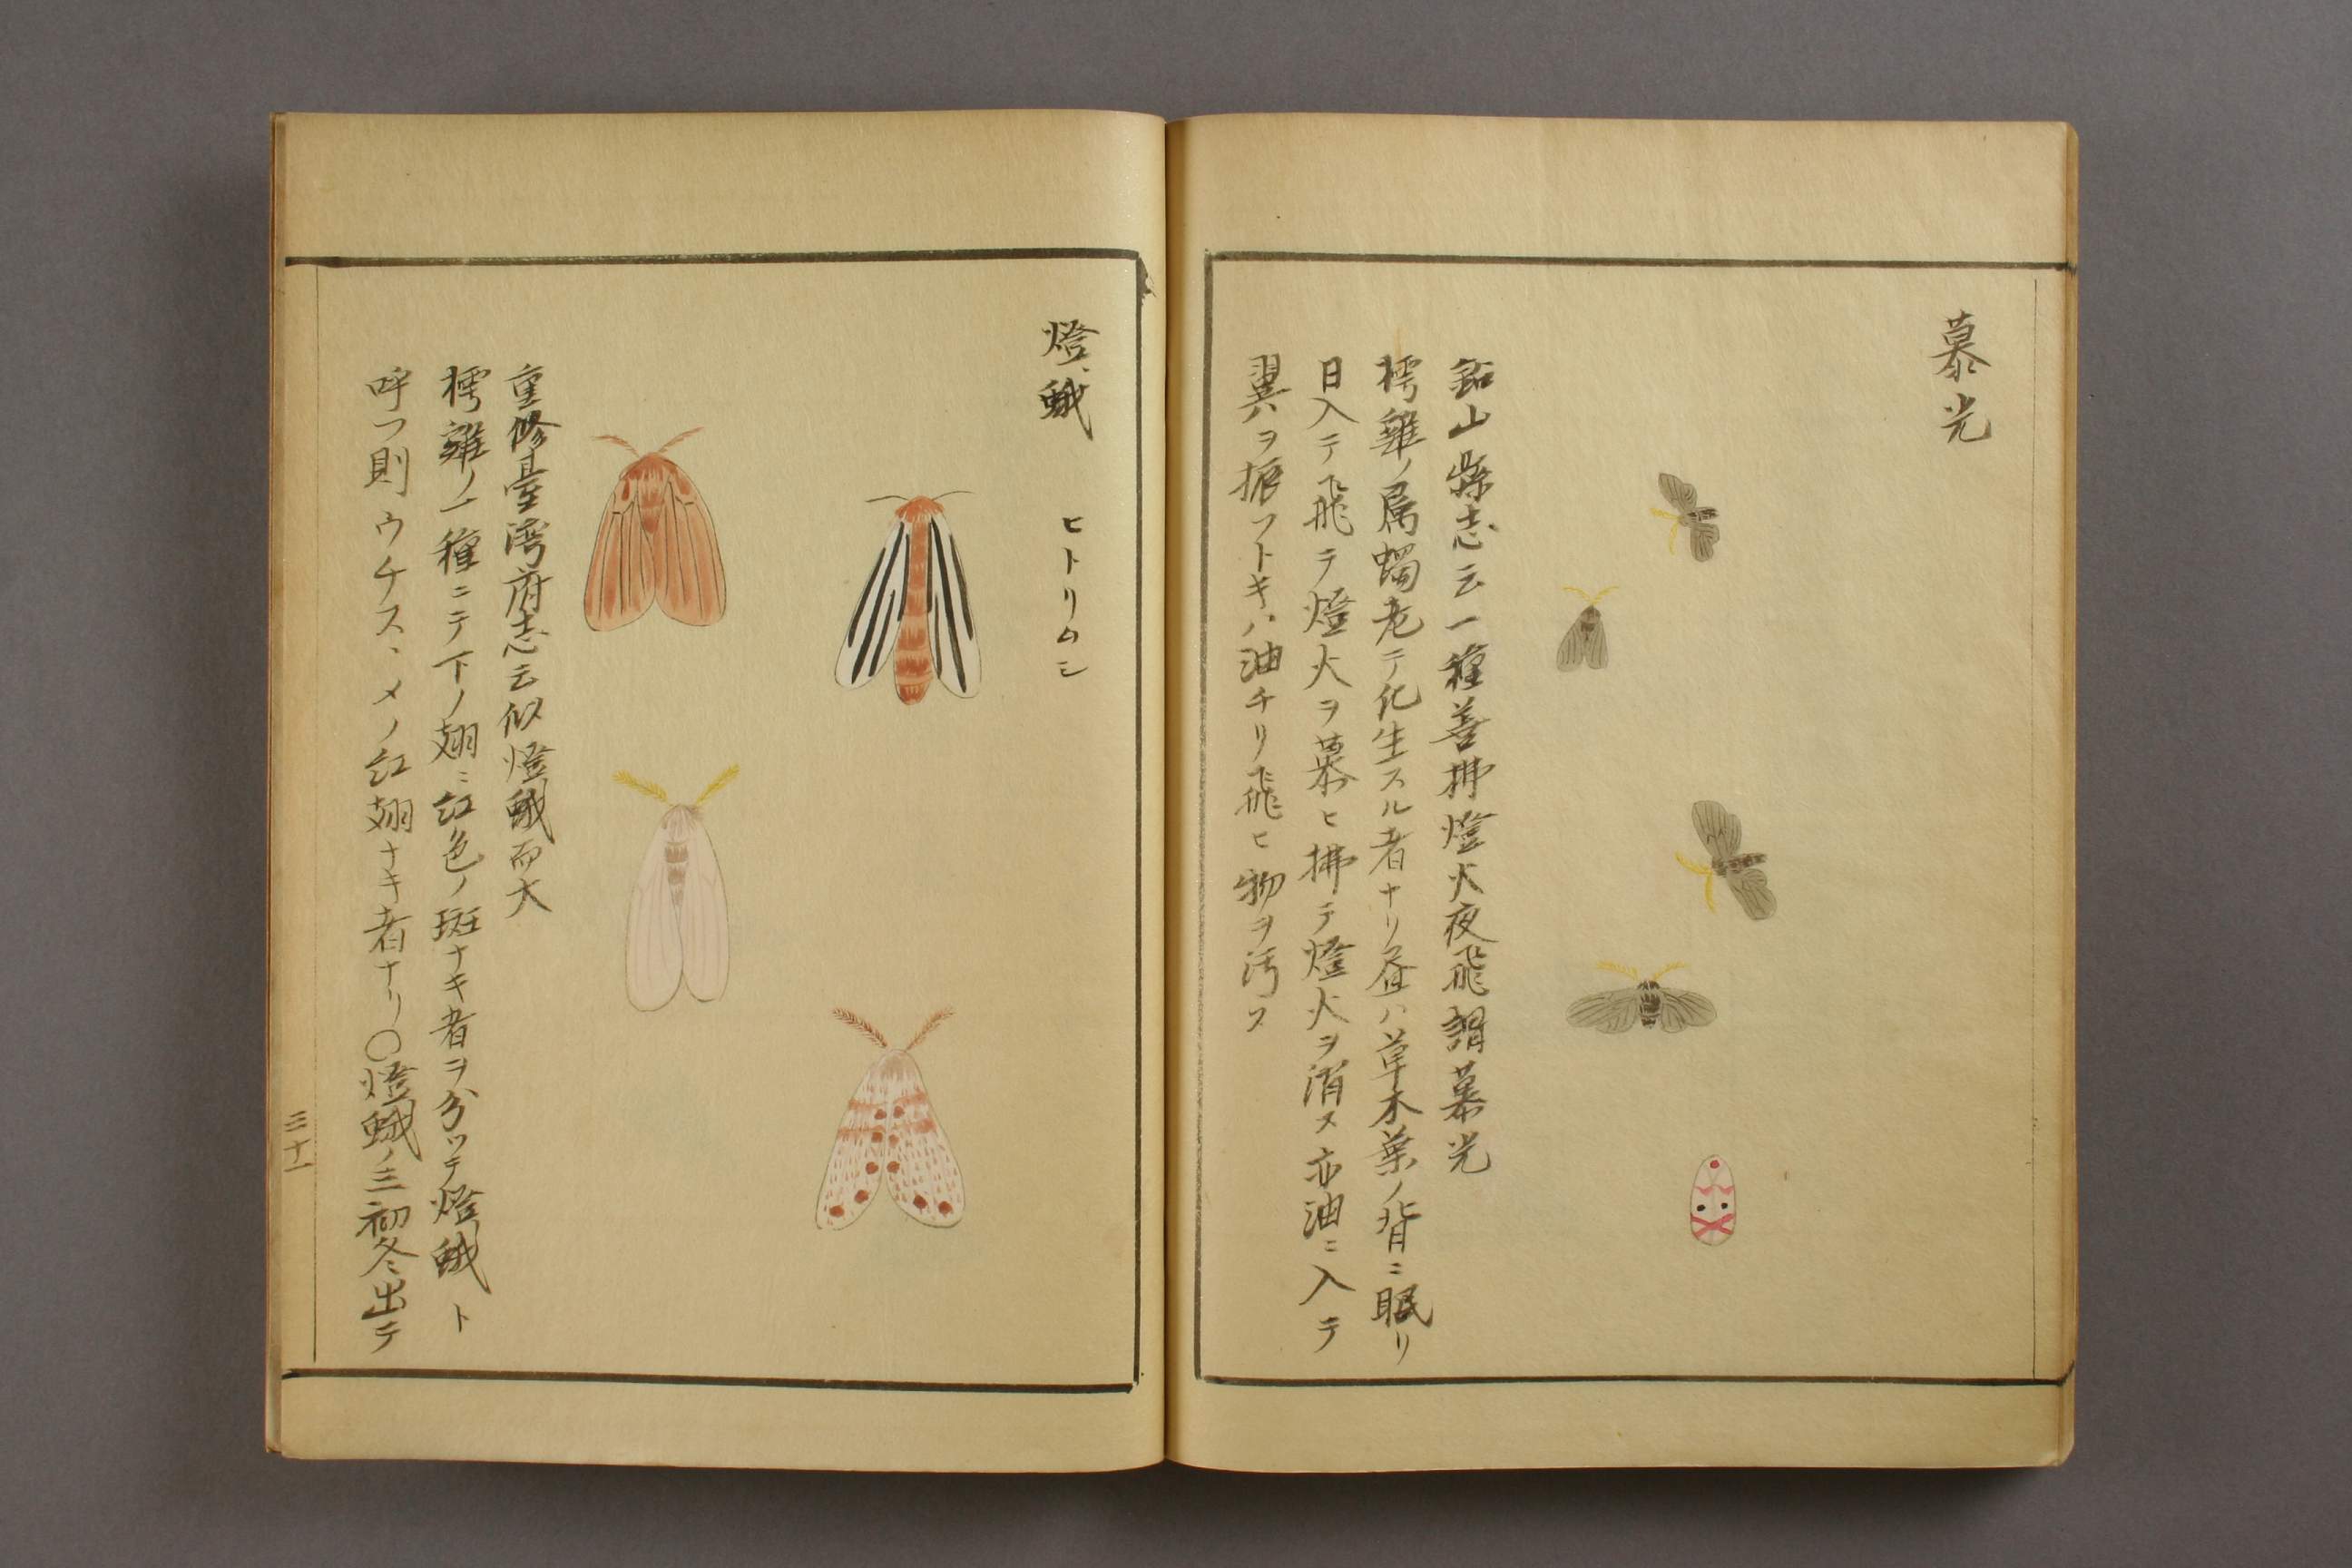 慕光
鉛山縣志云一種善拂燈火夜飛謂慕光
樗雞ノ属蠋老テ化生スル者ナリ昼ハ草木葉ノ背ニ眠リ
日入テ飛テ燈火ヲ慕ヒ拂テ燈火ヲ消ス亦油ニ入テ
翼ヲ振フトキハ油チリ飛ヒ物ヲ汚ス
燈蛾
ヒトリムシ
重修臺湾府志云似燈蛾而大
樗雞ノ一種ニテ下ノ翅ニ紅色ノ斑ナキ者ヲ分ツテ燈蛾ト
呼フ則ウチスヽメノ紅翅ナキ者ナリ〇燈蛾ノ三初冬ニ出テ
三十一